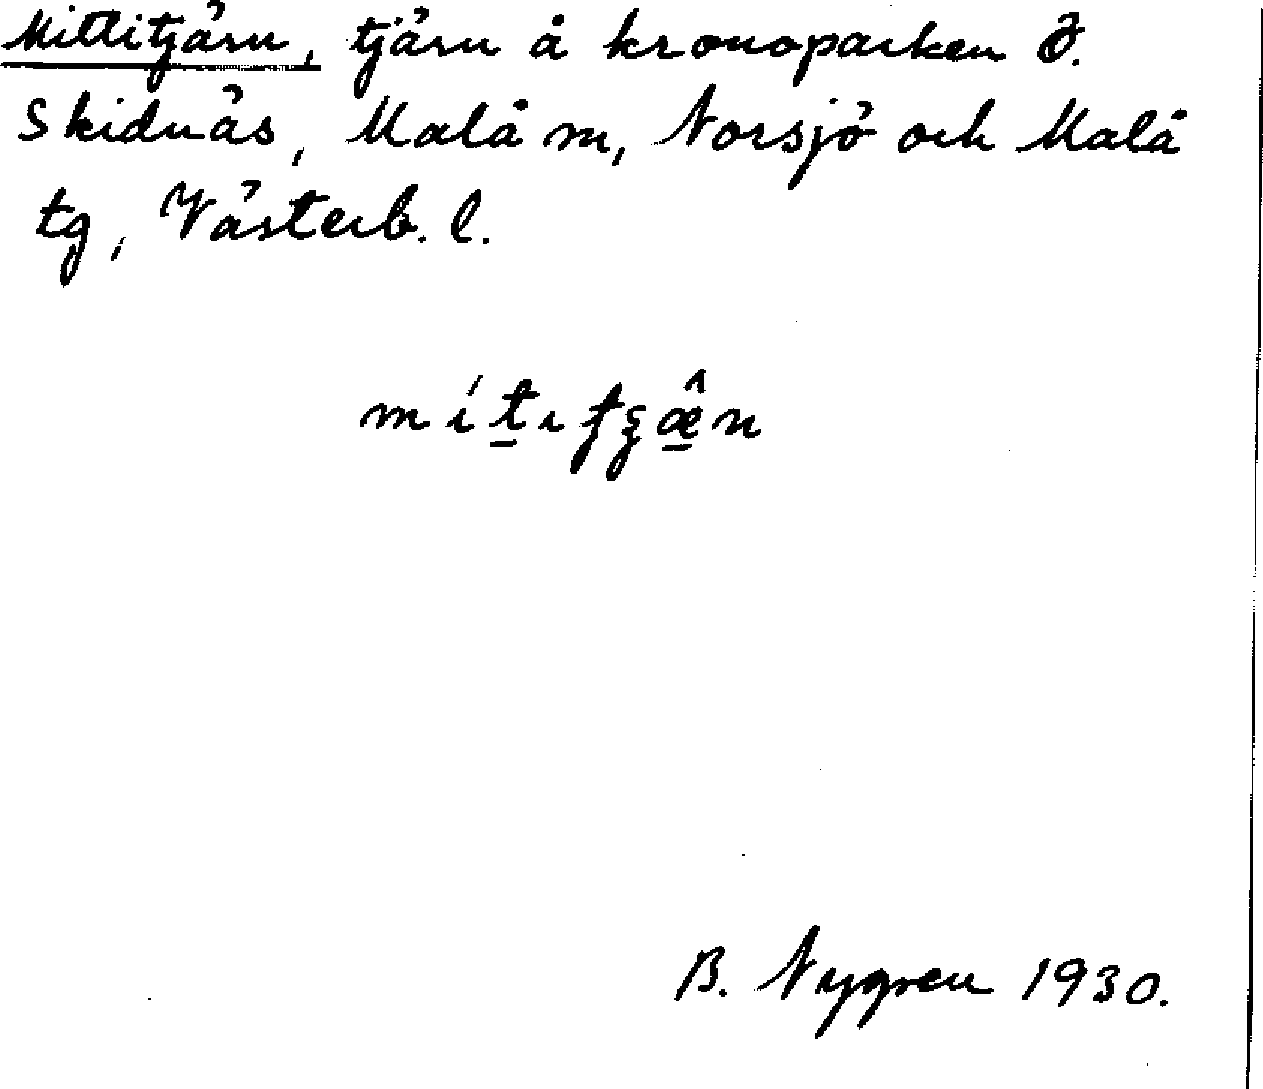 Mittitjärn, tjärn å kronoparken Ö.
Skidnäs, Malå sn, Norsjö och Malå
tg, Västerb. l.
B. Nygren 1930.